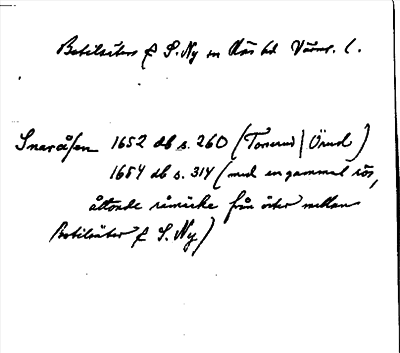 Botilsäter & S. Ny sn Näs hd Värml. l.
Snaråsen 1652 db s. 260 (Torserud | Önud)
1654 db s. 314 (med en gammal rös,
åttonde råmärke från öster mellan
Botilsäter & S. Ny)